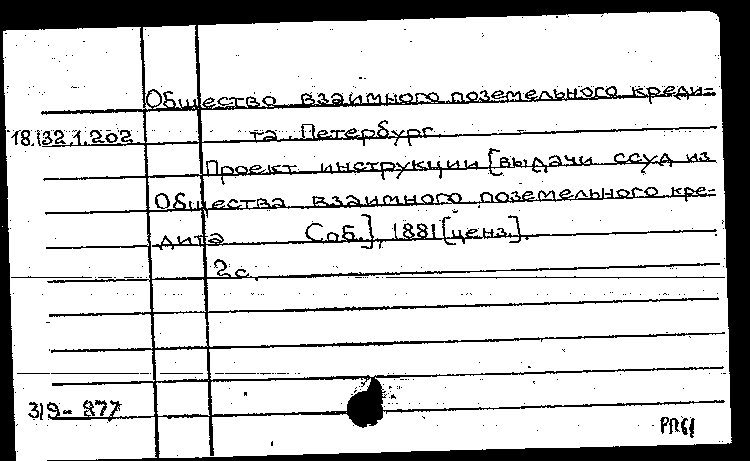 Общество взаимного поземельного креди=
18.132.1.202 та. Петербург.
Проект инструкции [выдачи ссуд из
Общества взаимного поземельного кре=
дита Соб.], 1881 [ценз.].
2 с.
319-877